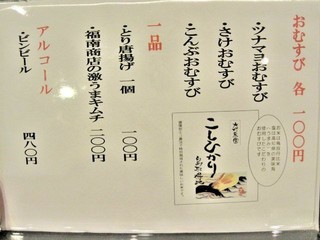 おむすび 各 一〇〇円
・ツナマヨおむすび
・さけおむすび
・こんぶおむすび
こしひかり
一品
・とり唐揚げ 一個 一〇〇円
・福南商店の激うまキムチ 二〇〇円
アルコール
・ビンビール 四八〇円